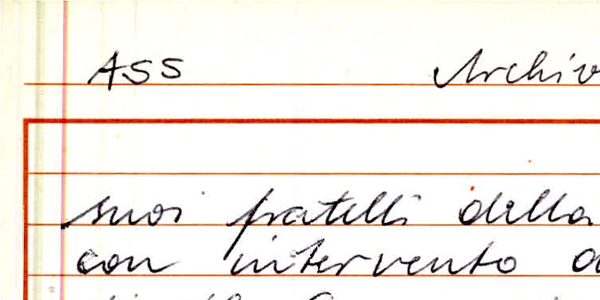 ASS Archiv
suoi fratelli della
con intervento d